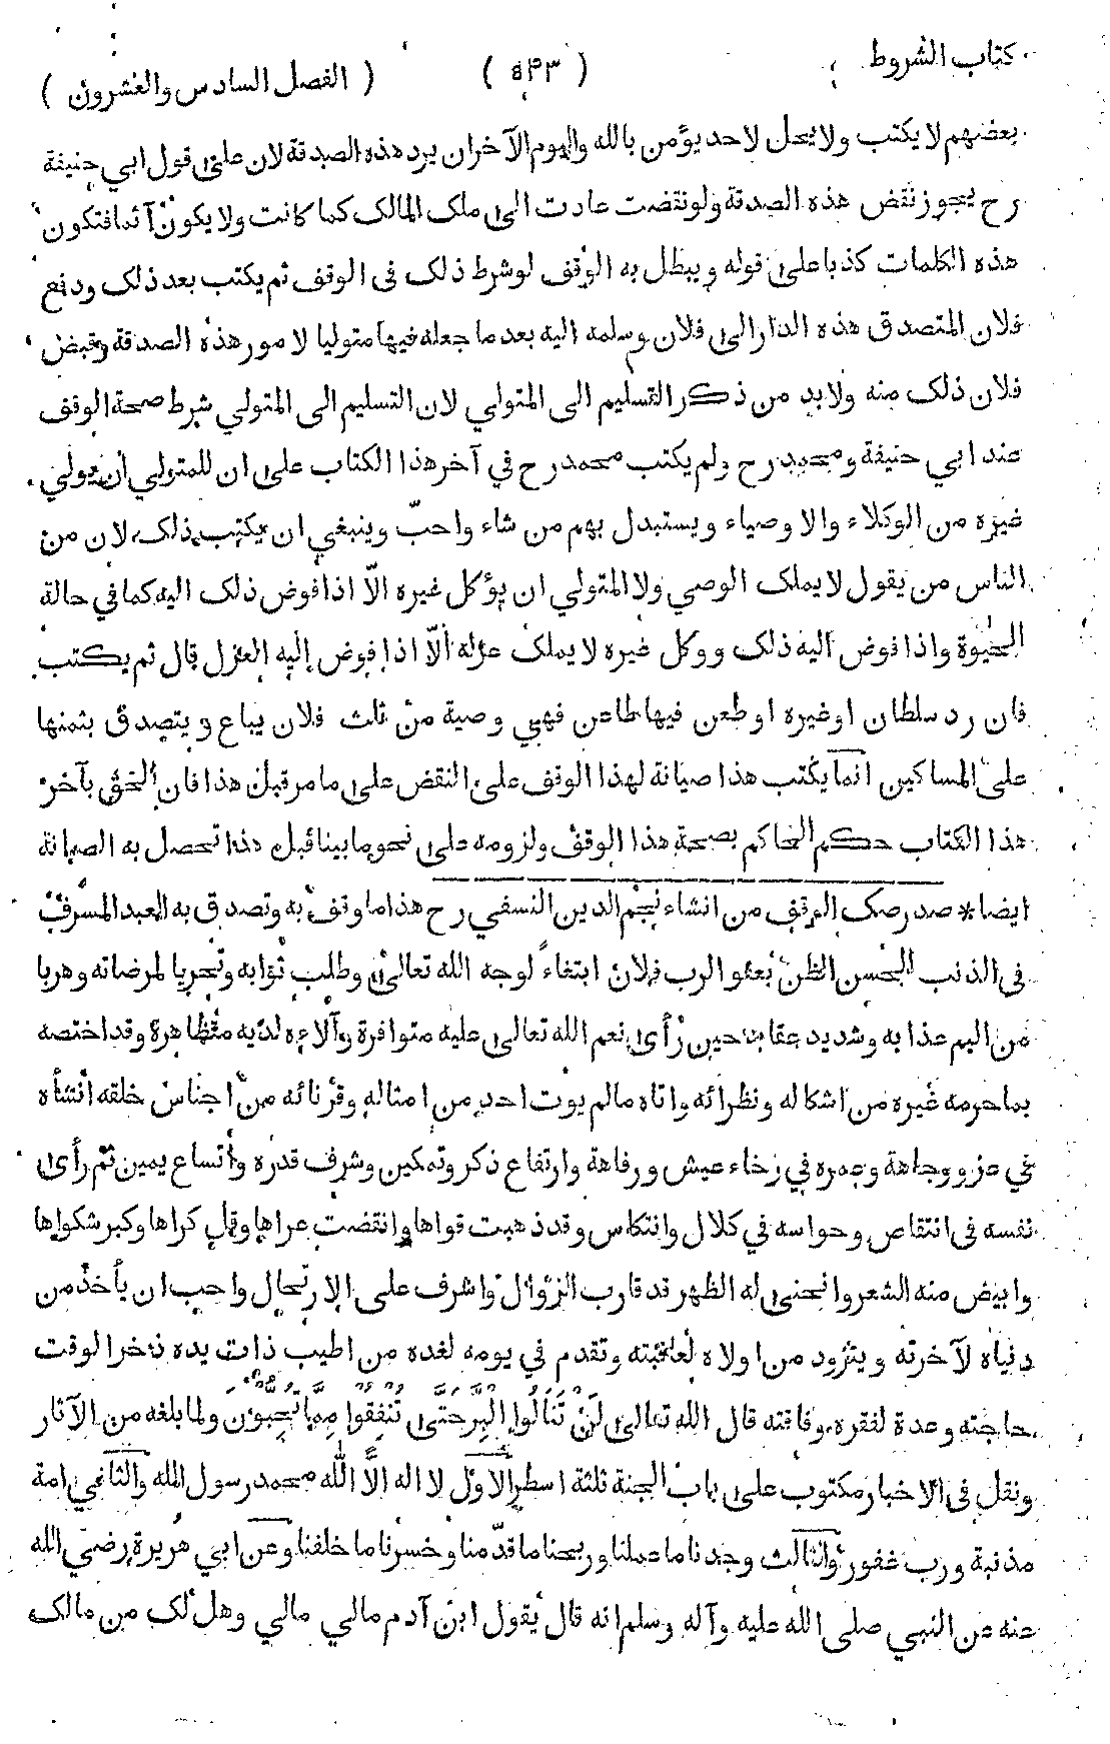 كتاب الشروط ( ٥٤٣ ) ( الفصل السادس والعشرون )
بعضهم لا يكتب ولا يحل لاحد يؤمن بالله واليوم الآخر ان يرد هذه الصدقة لان على قول ابي حنيفة
رح يجوز نقض هذه الصدقة ولو نقضت عادت الى ملك المالك كما كانت ولا يكون آثما فتكون
هذه الكلمات كذبا على قوله ويبطل به الوقف لو شرط ذلك فى الوقف ثم يكتب بعد ذلك ودفع
فلان المتصدق هذه الدار الى فلان وسلمه اليه بعد ما جعله فيها متوليا لامور هذه الصدقة وقبض
فلان ذلك منه ولابد من ذكر التسليم الى المتولي لان التسليم الى المتولي شرط صحة الوقف
عند ابي حنيفة ومحمد رح ولم يكتب محمد رح في آخر هذا الكتاب على ان للمتولي ان يولي
غيره من الوكلاء والاوصياء ويستبدل بهم من شاء واحبّ وينبغي ان يكتب ذلك لان من
الناس من يقول لا يملك الوصي ولا المتولي ان يؤكل غيره الّا اذا فوض ذلك اليه كما في حالة
الحيوة واذا فوض اليه ذلك ووكل غيره لا يملك عزله الّا اذا فوض اليه العزل قال ثم يكتب
فان رد سلطان او غيره او طعن فيها طاعن فهي وصية من ثلث فلان يباع ويتصدق بثمنها
على المساكين انما يكتب هذا صيانة لهذا الوقف على النقض على ما مر قبل هذا فان الحق بآخر
هذا الكتاب حكم الحاكم بصحة هذا الوقف ولزومه على نحو ما بينا قبل هذا تحصل به الصيانة
ايضا * صدر صك الوقف من انشاء نجم الدين النسفي رح هذا ما وقف به وتصدق به العبد المسرف
فى الذنب الحسن الظن بعفو الرب فلان ابتغاءً لوجه الله تعالى وطلب ثوابه وتحريا لمرضاته وهربا
من اليم عذابه وشديد عقابه حين رأى نعم الله تعالى عليه متوافرة وآلاءه لديه متظاهرة وقد اختصه
بما حرمه غيره من اشكاله ونظرائه واتاه مالم يوت احد من امثاله وقرنائه من اجناس خلقه انشأه
في عز ووجاهة وعمره في رخاء عيش ورفاهة وارتفاع ذكر وتمكين وشرف قدره واتساع يمين ثم رأى
نفسه فى انتقاص وحواسه في كلال وانتكاس وقد ذهبت قواها وانقضت عراها وقل كراها وكبر شكواها
وابيض منه الشعر وانحنى له الظهر قد قارب الزوال واشرف على الارتحال واحب ان يأخذ من
دنياه لآخرته ويتزود من اولاه لعاقبته وتقدم في يومه لغده من اطيب ذات يده ذخرا لوقت
حاجته وعدة لفقره وفاقته قال الله تعالى لَنْ تَنَالُوا الْبِرَّ حَتَّى تُنْفِقُوا مِمَّا تُحِبُّونَ ولما بلغه من الآثار
ونقل فى الاخبار مكتوب على باب الجنة ثلثة اسطر الاول لا اله الّا الله محمد رسول الله والثاني امة
مذنبة ورب غفور والثالث وجدنا ما عملنا وربحنا ما قدّمنا وخسرنا ما خلفنا وعن ابي هريرة رضي الله
عنه عن النبي صلى الله عليه وآله وسلم انه قال يقول ابن آدم مالي مالي وهل لك من مالك